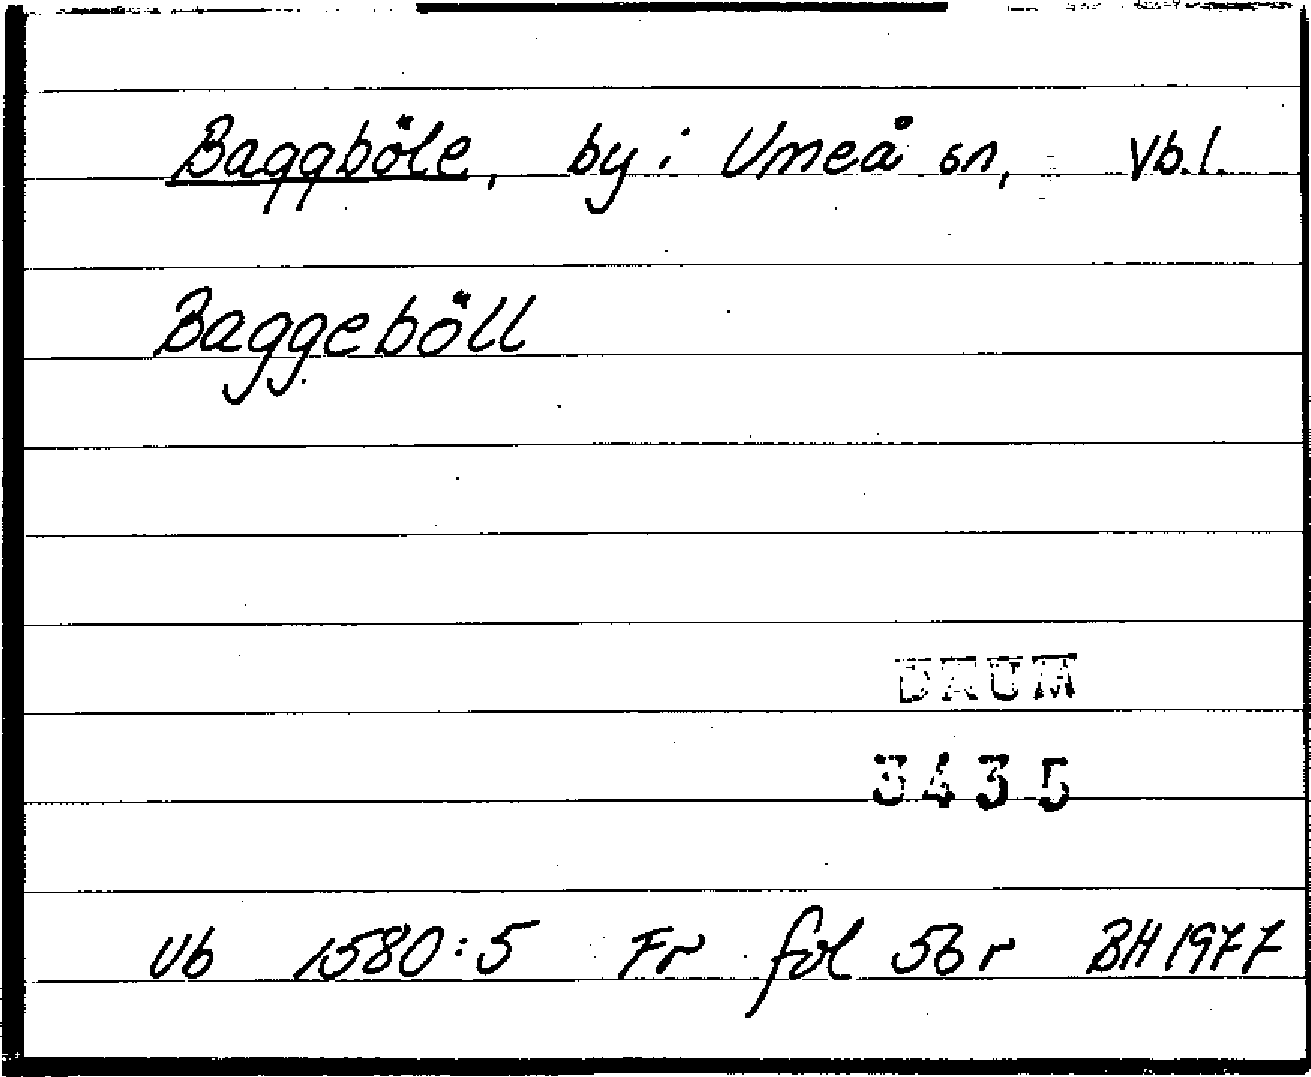 Baggböle, by i Umeå sn, Vb.l.
Baggeböll
DAUM
3435
Vb 1580:5 Fr fol 56r BH 1977